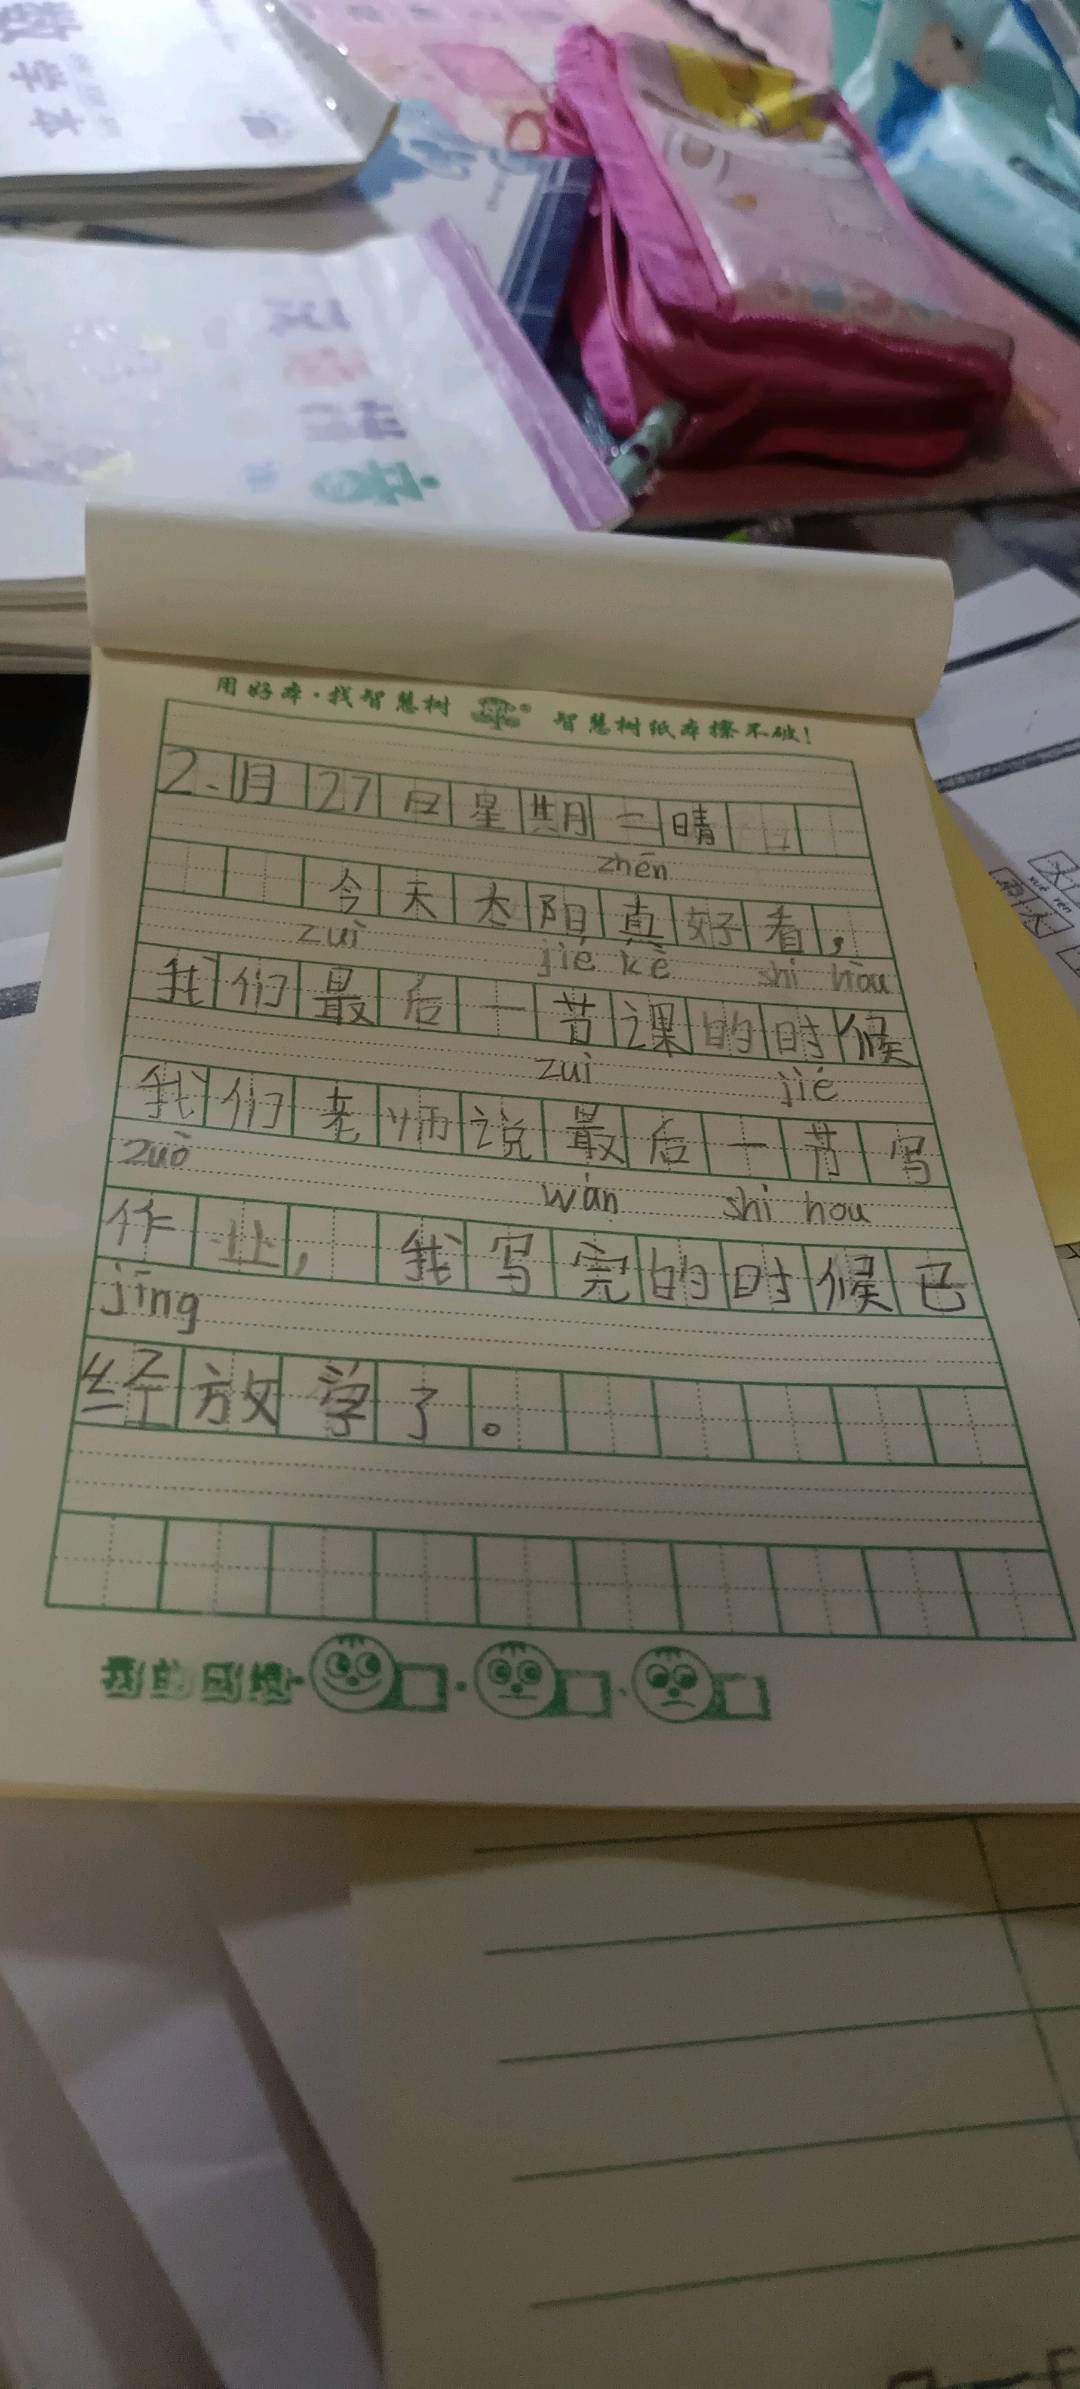 学
本
用好本·找智慧树 智慧树纸本擦不破!
2、月27日星期二晴
zhēn
今天太阳真好看,
zuì jié kè shí hòu
我们最后一节课的时候
zuì jié
我们老师说最后一节写
zuò wán shí hou
作业,我写完的时候已
jīng
经放学了。
我的成绩